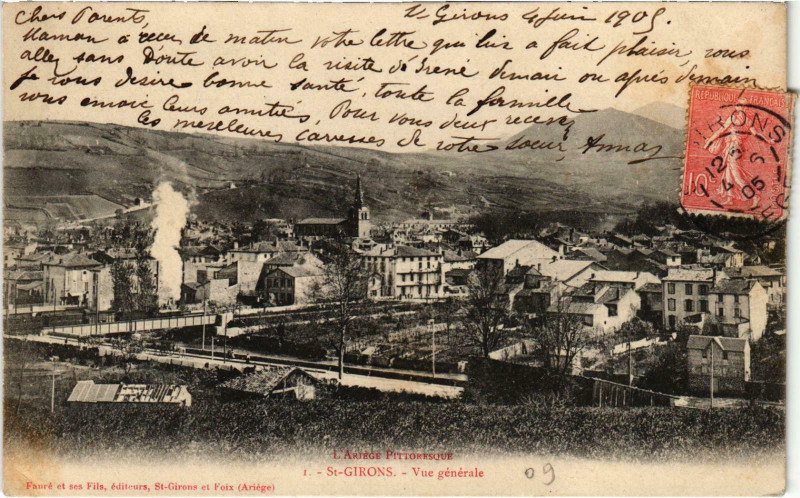 St Girons 4 Juin 1905.
Chers Parents,
Maman a reçu ce matin votre lettre qui lui a fait plaisir, vous
allez sans Doute avoir la visite d'Irené demain ou après demain
je vous désire bonne santé, toute la famille
vous envoie leurs amitiés, Pour vous deux recevez
les meilleures caresses de votre soeur, Anna
RÉPUBLIQUE FRANÇAISE
10
GIRONS
4 - 6
05
L'ARIÈGE PITTORESQUE
1. - St-GIRONS. - Vue générale
09
Fauré et ses Fils, éditeurs, St-Girons et Foix (Ariège)